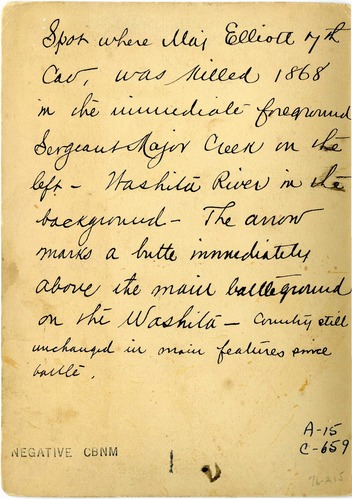 Spot where Maj Elliott 7th
Cav, was killed 1868
in the immediate foreground
Sergeant Major Creek on the
left - Washita River in the
background - The arrow
marks a butte immediately
above the main battleground
on the Washita - Country still
unchanged in main features since
battle.
A-15
C-659
NEGATIVE CBNM